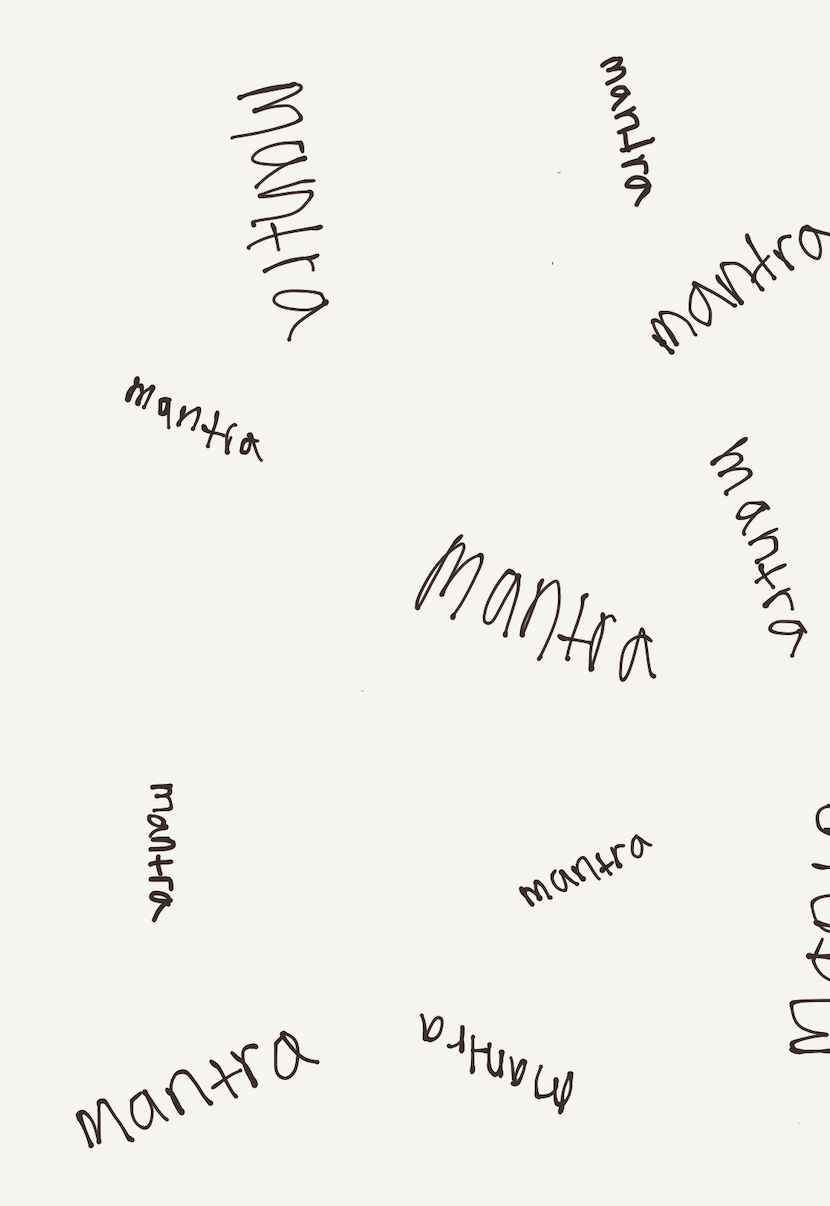 mantra
mantra
mantra
mantra
mantra
mantra
mantra
mantra
mantra
mantra